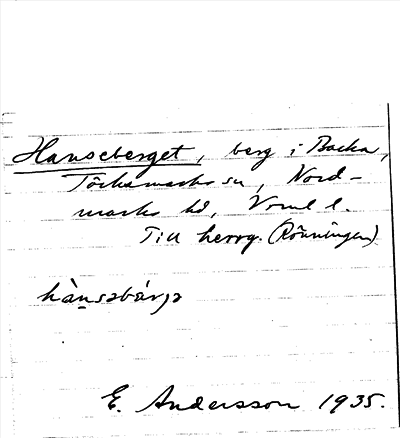 Hanseberget, berg i Backa,
Töcksmarks sn, Nord-
marks hd, Vrml l.
Till herrg. (Rönningen)
hànsəbárjə
E. Andersson 1935.